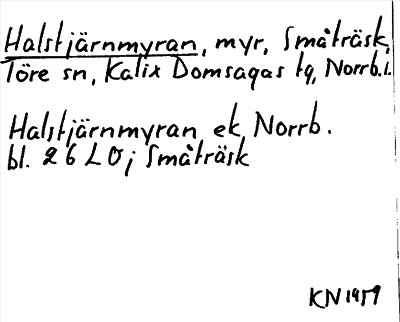 Halstjärnmyran, myr, Småträsk,
Töre sn, Kalix Domsagas tg, Norrb.l.
Halstjärnmyran ek, Norrb.
bl. 26 L 0j Småträsk
KN 1979